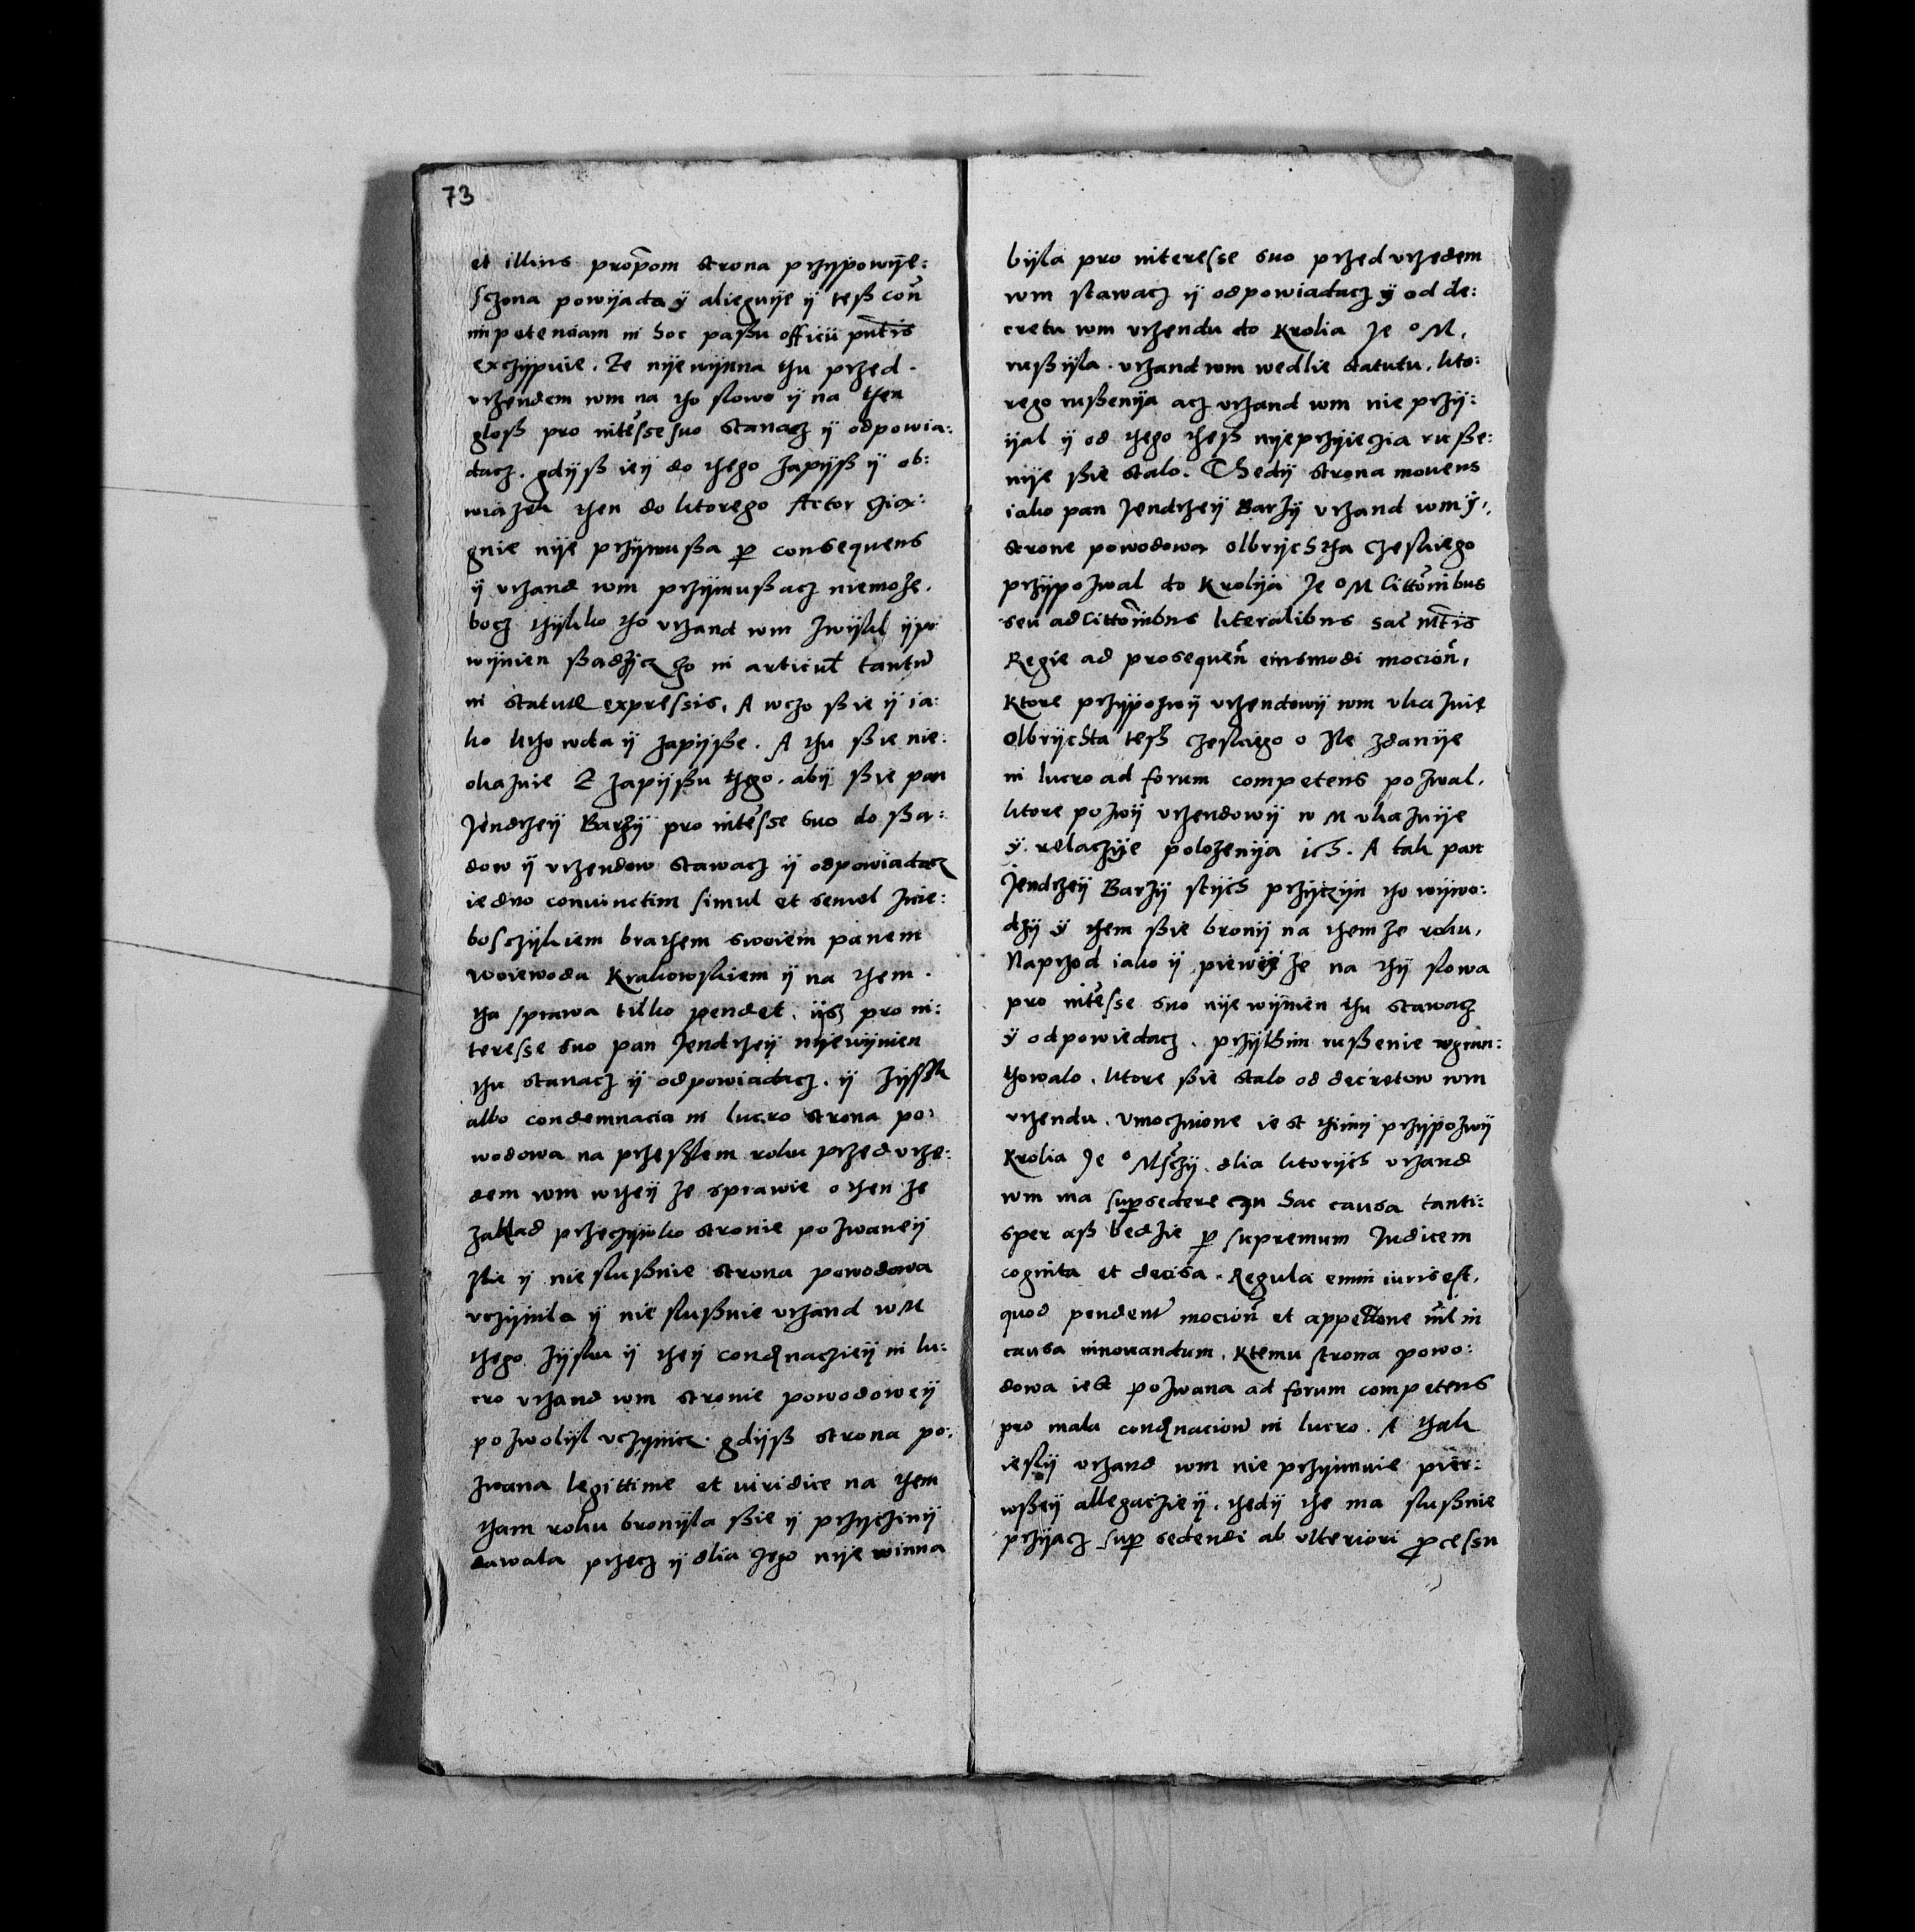 73
et illius prop̃om strona przypowÿe:
sczona powÿada ÿ alieguÿe ÿ tesß con̄
impetenciam in hoc paßu officii pn̄tis
exczÿpuie. Ze nÿewÿnna thu przed
vrzendem wm na tho slowo ÿ na then
glosß pro int̃esse suo stanacz ÿ odpowia:
dacz. gdÿsß ieÿ do thego zapÿsß ÿ ob:
wiązek then do ktorego Actor cziąx:
gnie nÿe przÿmußa ꝑ consequens
ÿ vrzand wm przÿmußacz niemoże.
bocz tÿlko tho vrzand wm zwÿkl ÿ po
wÿnien ßadzicz tho in articul̄ tantū
in statute expressis, A wczo ßie ÿ ia:
ko ktho wda ÿ zapÿsße. A thu ßie nie:
okazuie Z zapÿßu thego. abÿ ßie pan
Jendrzeÿ Barzÿ pro int̃esse suo do ßa:
dow ÿ vrzendow stawacz ÿ odpowiadacz
iedno coniunctim simul et semel znie:
bosczÿkiem brathem swoiem panem
woiewoda Krakowskiem ÿ na them
tha sprawa tilko pendet. ÿsz pro in:
teresse suo pan Jendrzeÿ nÿewÿnien
thu stanacz ÿ odpowiadacz. ÿ zÿssk
albo condemnacia in lucro strona po:
wodowa na przeßlem roku przed vrze:
dem wm wtheÿ ze sprawie o then ze
zaklad przecżÿwko stronie pozwaneÿ
zle ÿ nie slußnie strona powodowa
vczÿnila ÿ nie slußnie vrzand w M
thego zÿsku ÿ theÿ condn̄acziëÿ in lu:
cro vrzand wm stronie powodoweÿ
pozwolÿl vczynicz. gdÿsß strona po:
zwana legittime et iuridice na them
tham roku bronÿla ßie ÿ przÿczinÿ
dawala przecz ÿ dlia czego nÿe winna
bÿla pro interesse suo przed vrzedem
wm stawacz ÿ odpowiadacz ÿ od de:
cretu wm vrzendu do Krolia Je ᵒ M.
rußÿla. vrzand wm wedlie statutu. kto:
rego rußenÿa acz vrzand wm nie przÿ:
ÿal ÿ od thego thesß nÿeprzÿięczia ruße:
nÿe ßie stalo. Thedÿ strona mouens
iako pan Jendrzeÿ Barzÿ vrzand wm ÿ
strone powodowa Olbrÿchtha Czeskiego
przÿpozwal do Krolÿa Je ᵒ M Citt̃onibus
seu ad citt̃onibus literalibus sac̃ mt̄is
Regie ad prosequen̄ eiusmodi mocion̄,
Ktore przÿpozwÿ vrzendowÿ wm vkazuie
Olbrÿchta tesß czeskiego o zle zdanÿe
in lucro ad forum competens pozwal.
ktore pozwÿ vrzendowÿ w M vkazuÿe
ÿ relaczÿe polożenÿa ich. A tak pan
Jendrzeÿ Barzÿ s tÿch przÿczÿn tho wÿwo:
dzÿ ÿ them ßie bronÿ na themze roku,
Naprzod iako ÿ pierweÿ ze na thÿ slowa
pro int̃esse suo nÿe wÿnien thu stawacz
ÿ odpowiedacz. przÿthim rußenie wgrun:
thowalo. ktore ßie stalo od decretow wm
vrzendu. vmocznione iest thimÿ przÿpozwÿ
Krolia Je ᵒ Msczÿ. dlia ktorÿch vrzand
wm ma suꝑsedere in hac causa tanti:
sper asß bedzie ꝑ supremum Judicem
cognita et decisa. Regula enim iuris est.
quod pendent̃ mocion̄ et appellõne nīl in
causa innouandum. Ktemu strona powo:
dowa iest pozwana ad forum competens
pro mala condn̄acion̄ in lucro. A thak
ieslÿ vrzand wm nie przÿimuie pier:
wßeÿ allegacieÿ. thedÿ the ma slußnie
przÿjacz suꝑ sedendi ab vlteriori ꝓcessu